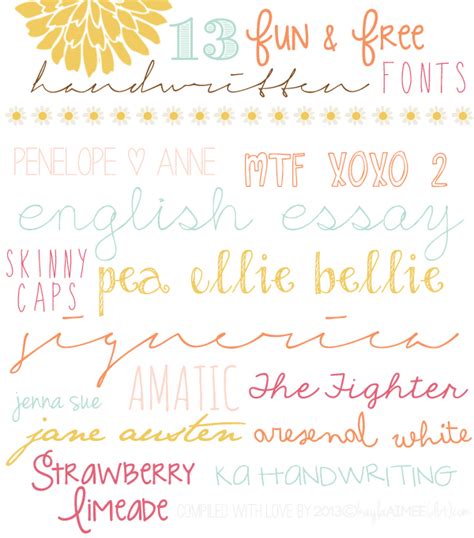 13 fun & free
handwritten FONTS
PENELOPE ♡ ANNE MTF XOXO 2
english essay
SKINNY CAPS pea ellie bellie
signerica
jenna sue AMATIC The Fighter
jane austen aresenal white
STRAWBERRY LIMEADE KA HANDWRITING
COMPILED WITH LOVE BY 2013©